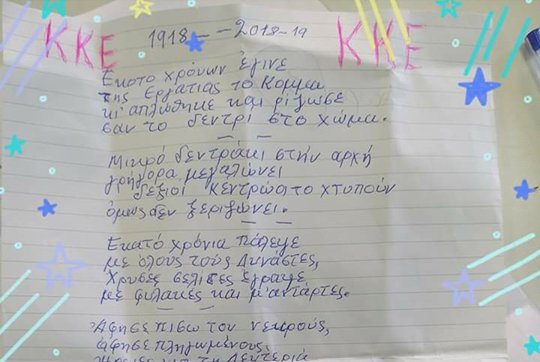 ΚΚΕ 1918 - - 2018-19 ΚΚΕ
Εκατο χρόνων έγινε
της Εργατιάς το Κομμα
κι' απλώθηκε και ρίζωσε
σαν το δεντρί στο χώμα.
Μικρό δεντράκι στήν αρχή
γρήγορα μεγαλώνει
δεξιοί Κεντρώοι το χτυπούν
όμως δεν ξεριζώνει.
Εκατό χρόνια πάλεψε
με όλους τούς Δυνάστες,
Χρυσές σελίδες έγραψε
με φυλακές και μ'αντάρτες.
Άφησε πισω του νεκρούς,
άφησε πληγωμένους,
για τη Λευτεριά